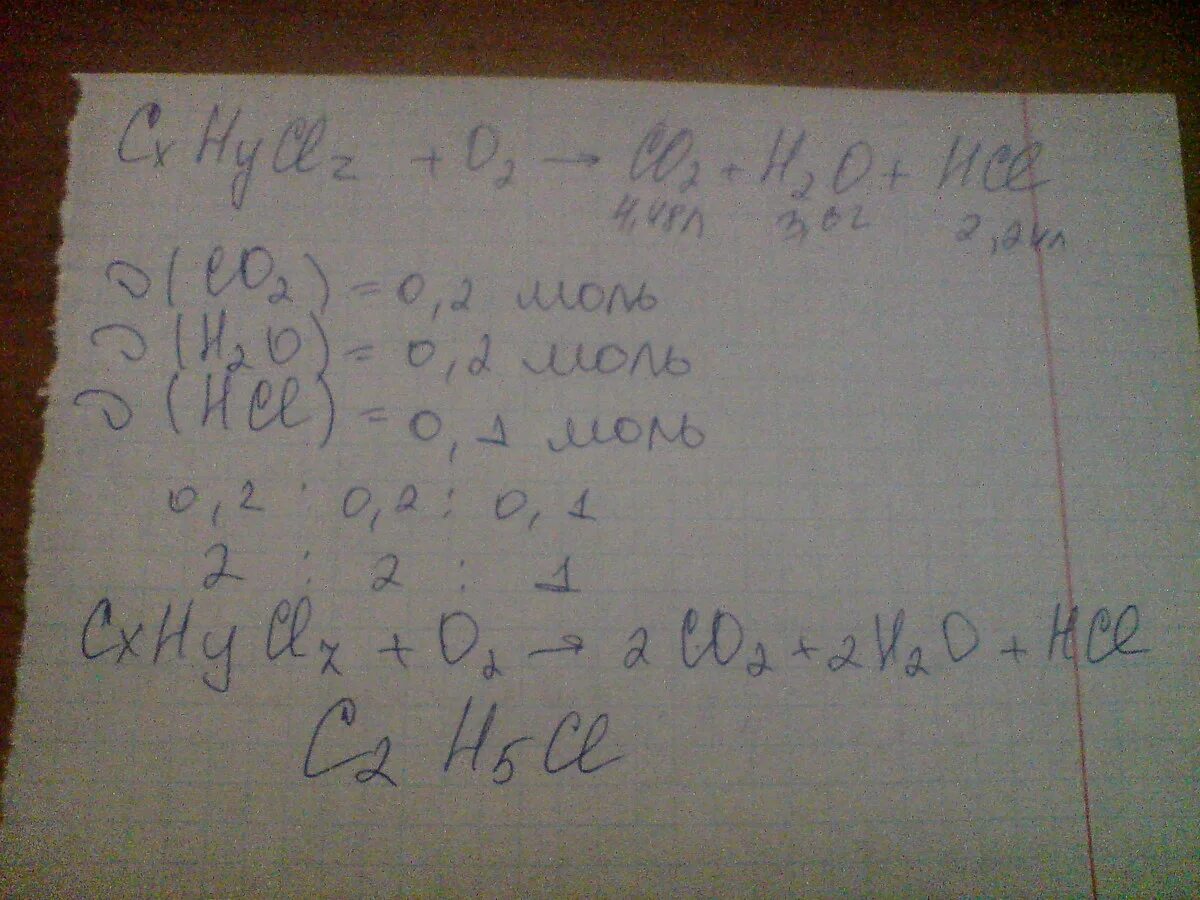 CxHyClz + O2 → CO2 + H2O + HCl
4,48л 3,6г 2,24л
ν(CO2) = 0,2 моль
ν(H2O) = 0,2 моль
ν(HCl) = 0,1 моль
0,2 : 0,2 : 0,1
2 : 2 : 1
CxHyClz + O2 → 2CO2 + 2H2O + HCl
C2H5Cl